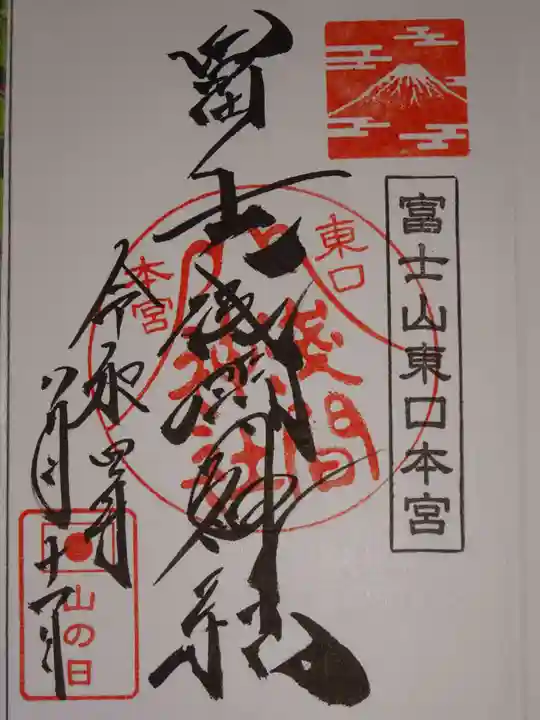 富士山東口本宮
冨士浅間神社
東口
本宮
浅間
神社
令和四年
八月十一日
山の日